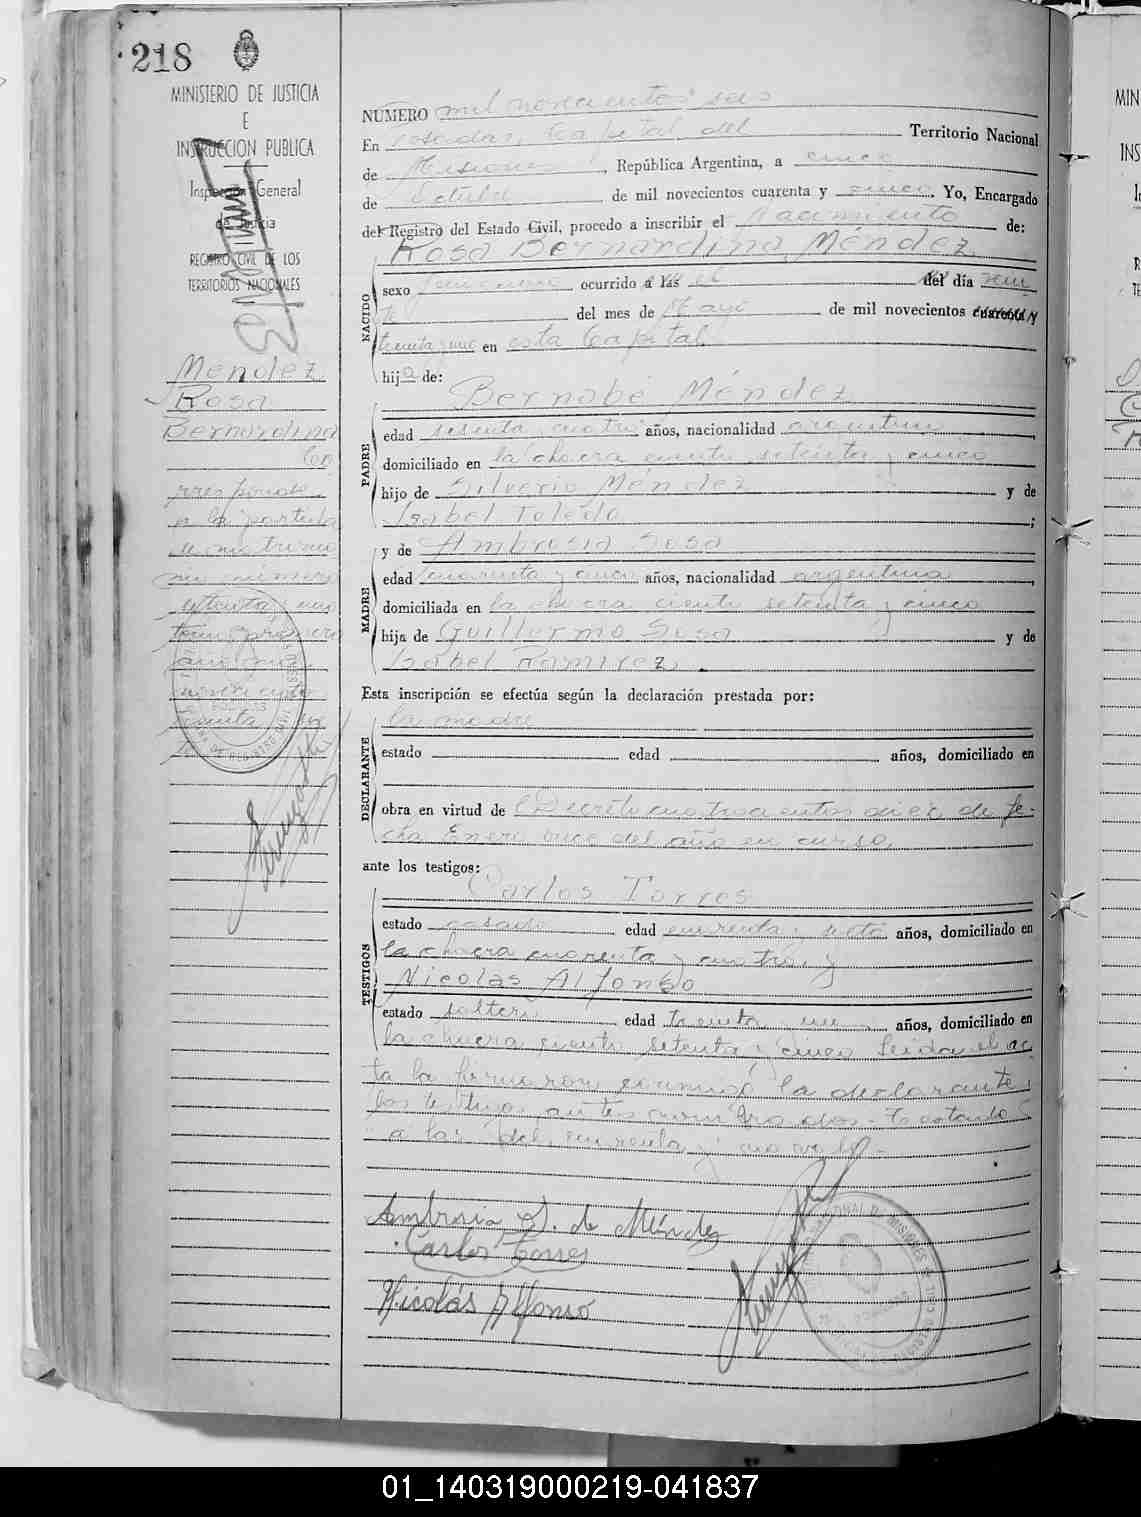 218
MINISTERIO DE JUSTICIA
E
INSTRUCCION PUBLICA
Inspección General
de Justicia
REGISTRO CIVIL DE LOS
TERRITORIOS NACIONALES
Mendez
Rosa
Bernardina
Co
rresponde
a la partida
número
NUMERO mil novecientos seis
En Posadas, Capital del Territorio Nacional
de Misiones, República Argentina, a cinco
de Octubre de mil novecientos cuarenta y cinco. Yo, Encargado
del Registro del Estado Civil, procedo a inscribir el Nacimiento de:
Rosa Bernardina Méndez
NACIDO
sexo femenino ocurrido a las el del día vein
te del mes de Mayo de mil novecientos cuarenta y
treinta y uno en esta Capital
hija de:
Bernabé Méndez
PADRE
edad sesenta y cuatro años, nacionalidad argentina,
domiciliado en la chacra ciento setenta y cinco
hijo de Silverio Méndez y de
Isabel Toledo;
y de Ambrosia Sosa
MADRE
edad cuarenta y cinco años, nacionalidad argentina,
domiciliada en la chacra ciento setenta y cinco
hija de Guillermo Sosa y de
Isabel Ramirez.
Esta inscripción se efectúa según la declaración prestada por:
la madre
DECLARANTE
estado edad años, domiciliado en
obra en virtud de Decreto cuatrocientos diez de fe-
cha Enero once del año en curso
ante los testigos:
Carlos Torres
TESTIGOS
estado casado edad cuarenta y siete años, domiciliado en
la chacra cuarenta y cuatro y
Nicolas Alfonso
estado soltero edad treinta y un años, domiciliado en
la chacra ciento setenta y cinco Leida el ac
ta la firmaron conmigo la declarante y
los testigos antes nombrados - Testando
"a las" "del" "cuarenta y" no vale -
Ambrosia S. de Méndez
Carlos Torres
Nicolás Alfonso
01_140319000219-041837